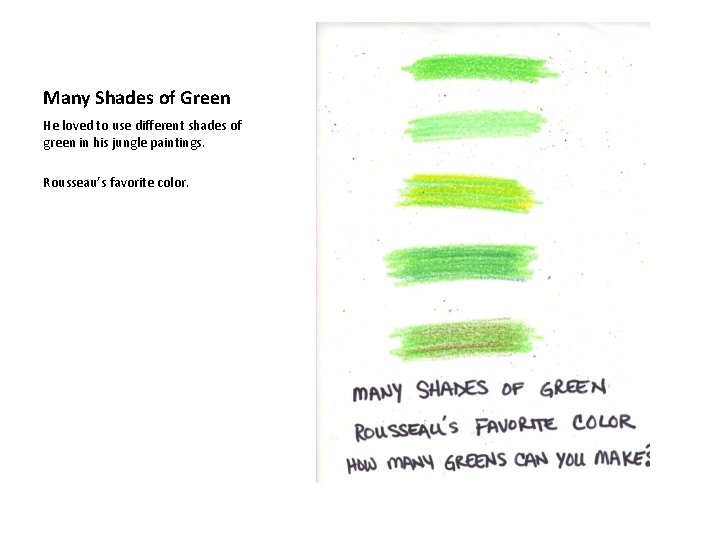 Many Shades of Green
He loved to use different shades of
green in his jungle paintings.
Rousseau's favorite color.
MANY SHADES OF GREEN
ROUSSEAU'S FAVORITE COLOR
HOW MANY GREENS CAN YOU MAKE?